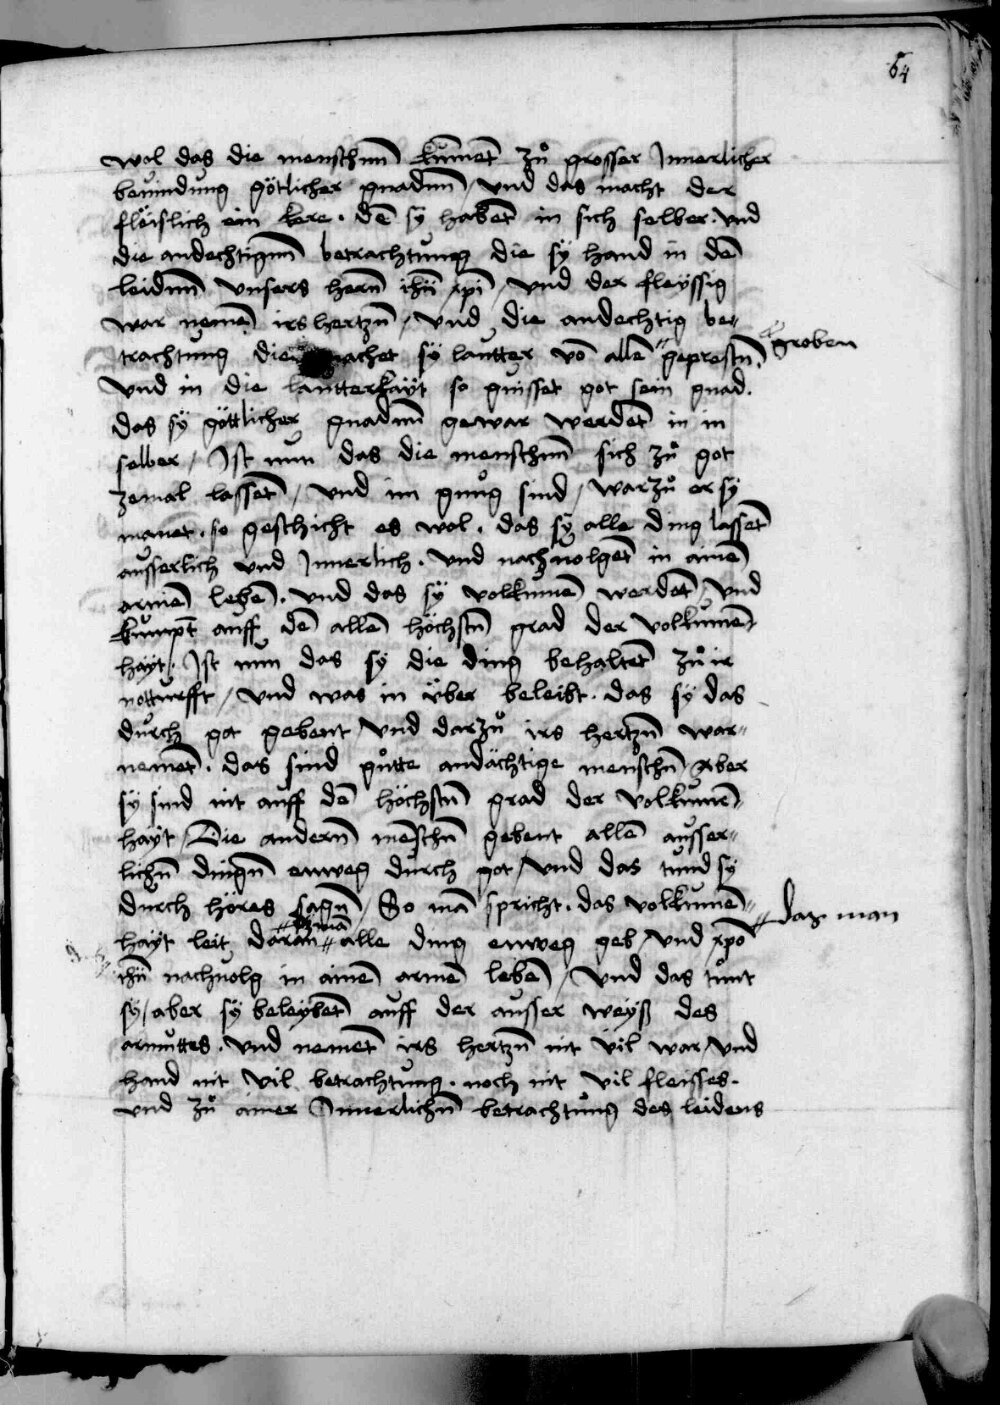 64
wol das die menschnn̄ kūmet̄ zů grosser Innerlicher
bevindung götlicher gnadnn̄ / vnd das macht der
fleislich ein kere . dē sy habet̄ in sich selber . vnd
die andechtignn̄ betrachtung die sÿ hand in dē
leidnn̄ vnsers hern̄ ihū xpi̅ / vnd der fleyssig
war nemē irs hertzn̄ / vnd die andechtig be⸗
trachtung die machet sÿ lautter vō allē ⸗ geprestn̄ .
⸗ groben
vnd in die lautterkäyt so gaisset got sein gnad .
das sÿ göttlicher gnadnn̄ gewar werdet̄ in in
selber / Ist nun das die menschnn̄ sich zů got
zemal lasset̄ / vnd im gnůg sind / warzů er sy
manet . so geschicht es wol . das sÿ alle ding lasset̄
ausserlich vnd Innerlich . vnd nachuolget̄ in ainē
armē lebē . vnd das sÿ volkumē werdet̄ / vnd
kumpt̄ auff dē allē höchstn̄ grad der volkumē⸗
häyt / Ist nun das sy die ding behaltet̄ zů ir
notturfft / vnd was in über beleibt . das sÿ das
durch got gebent vnd darzů irs hertzn̄ war⸗
nemet̄ . das sind gůtte andächtige menschn̄ / Aber
sÿ sind nit auff dē höchstn̄ grad der volkumē⸗
häyt / Die andern̄ mēschn̄ gebent allē ausser⸗
lichn̄ dingn̄ enweg durch got / vnd das tund sy
durch höres sagn̄ / So mā spricht . das volkumē⸗
häyt leit daran ⸗ alle ding enweg geb / vnd xpō
⸗ daz man
ihū nachuolg in ainē armē lebē / vnd das tůnt
sy / aber sy beleybet̄ auff der ausser weyß des
armuttes . vnd nemet̄ irs hertzn̄ nit vil war / vnd
hand nit vil betrachtung . noch nit vil fleisses .
vnd zů ainer Innerlichn̄ betrachtung des leidens